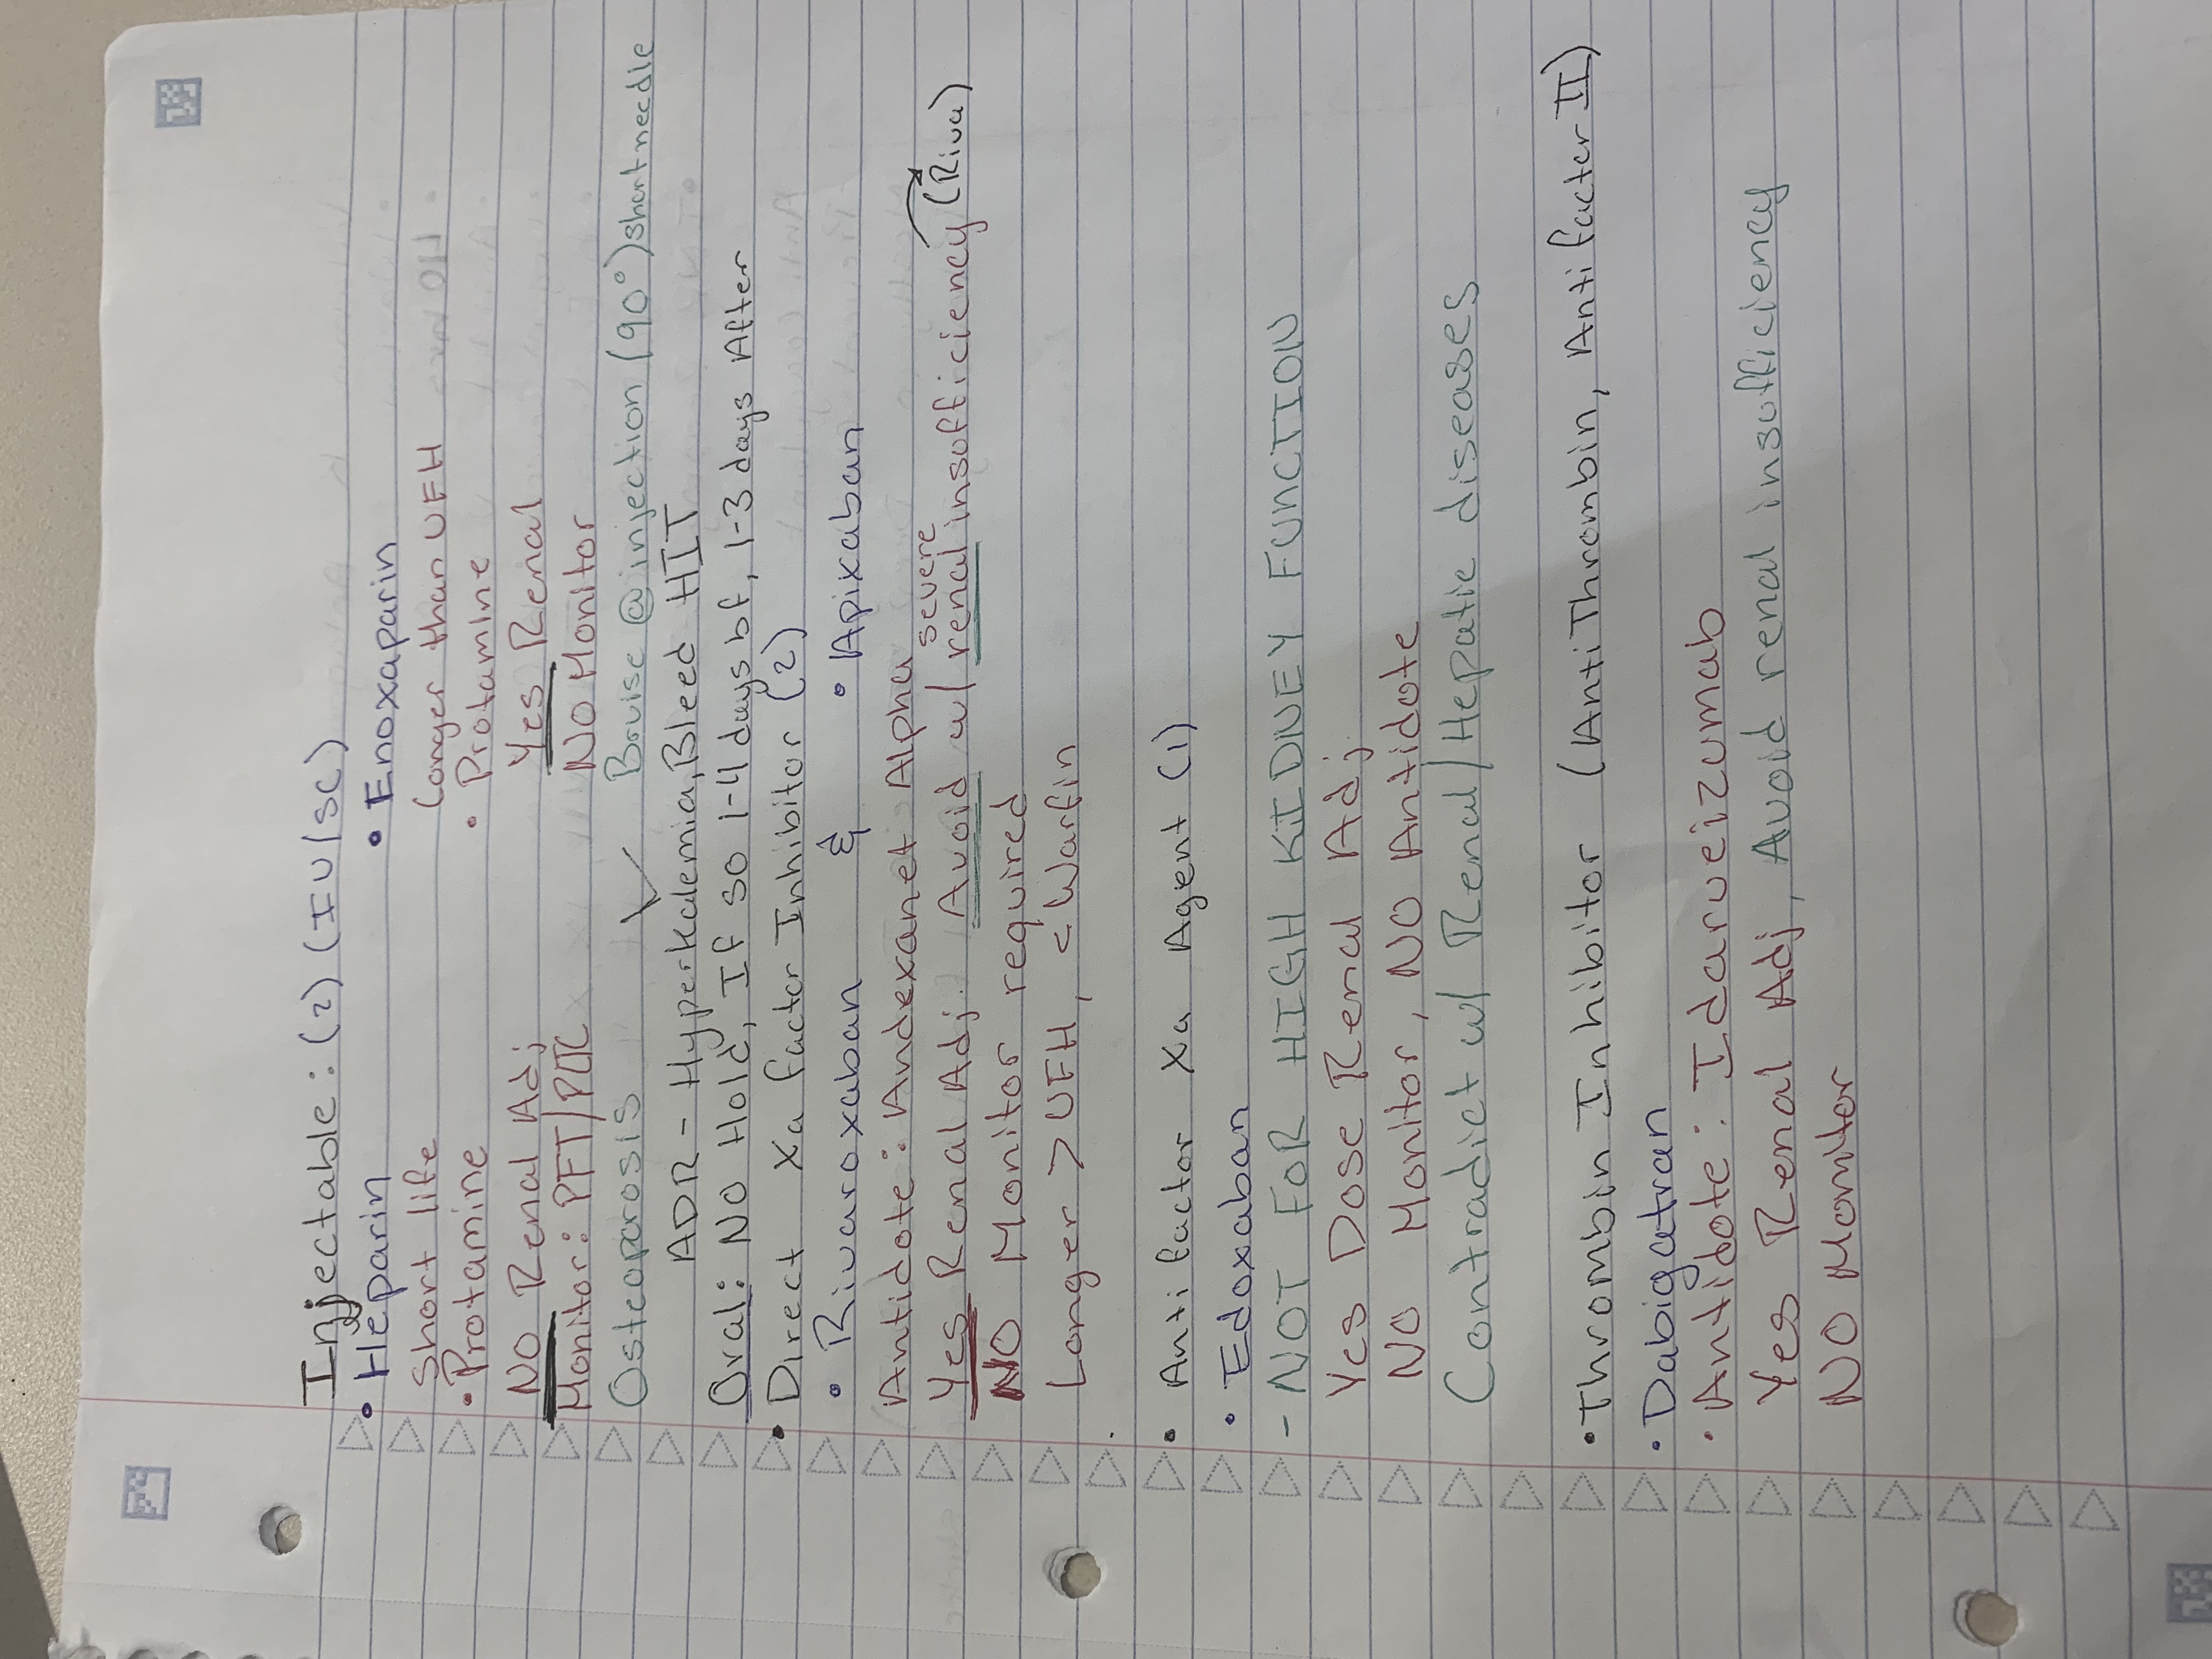 Injectable: (2) (IV/SC)
• Heparin • Enoxaparin
Short life Longer than UFH
• Protamine • Protamine
NO Renal Adj Yes Renal
Monitor: PFT/PTT NO Monitor
Osteoporosis Bruise @ injection (90°) short needle
ADR - Hyperkalemia, Bleed HIT
Oral: NO Hold, If so 1-4 days bf, 1-3 days After
• Direct Xa factor Inhibitor (2)
• Rivaroxaban & • Apixaban
Antidote: Andexanet Alpha
Yes Renal Adj. Avoid w/ severe renal insufficiency (Riva)
NO Monitor required
Longer > UFH, < Warfin
• Anti factor Xa Agent (1)
• Edoxaban
- NOT FOR HIGH KIDNEY FUNCTION
Yes Dose Renal Adj
NO Monitor, NO Antidote
Contradict w/ Renal/Hepatic diseases
• Thrombin Inhibitor (Anti Thrombin, Anti factor II)
• Dabigatran
• Antidote: Idarueizumab
Yes Renal Adj, Avoid renal insufficiency
NO Monitor